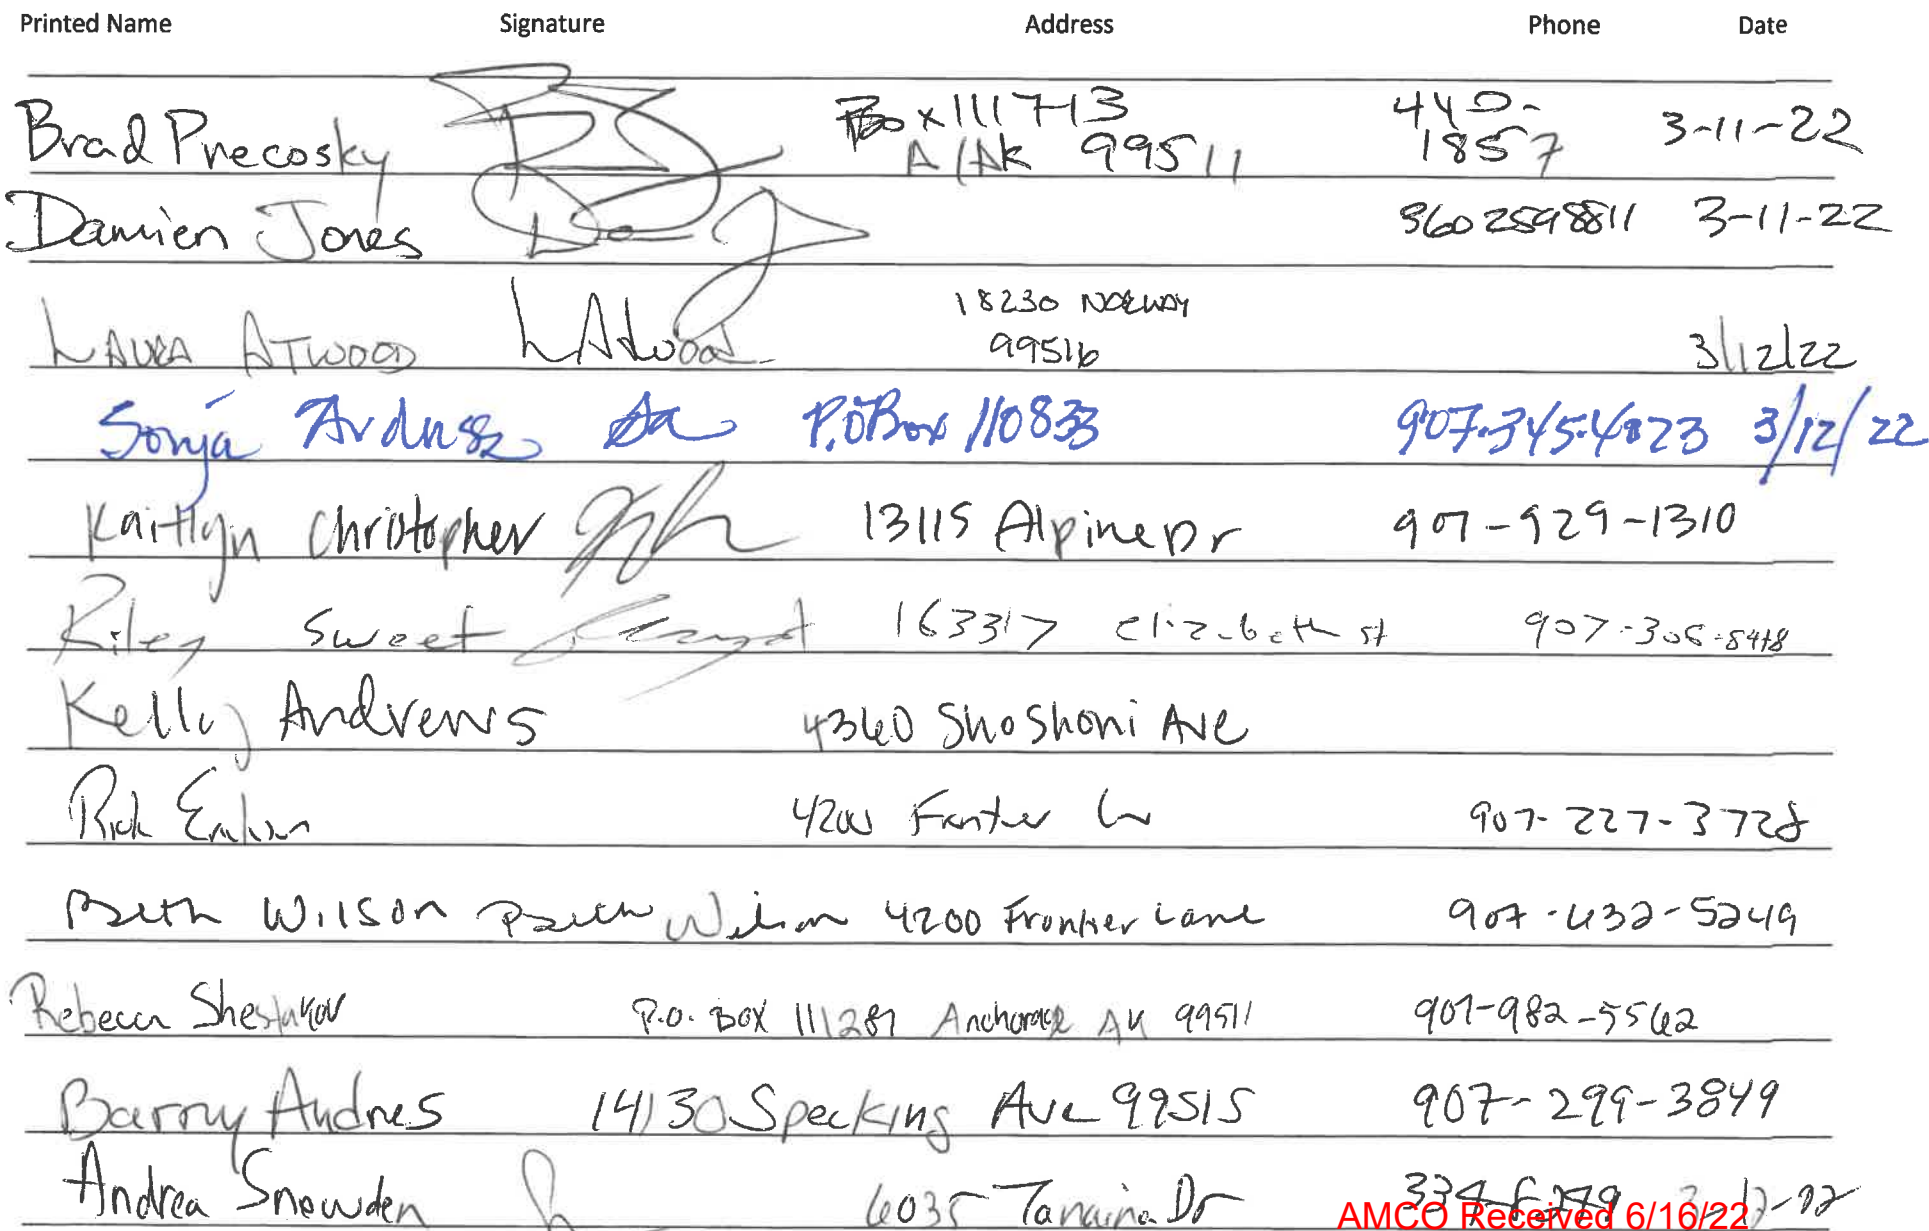 Printed Name Signature Address Phone Date
Brad Precosky Box 111713 440- 3-11-22
A/AK 99511 1857
Damien Jones 3602598811 3-11-22
LAURA ATWOOD LAtwood 18230 NORWAY
99516 3/12/22
Sonja P.O Box 110833 907.345.4823 3/12/22
Kaitlyn Christopher 13115 Alpine Dr 907-929-1310
Riley Sweet Elizabeth st
Kelly Andrews 4360 Shoshoni Ave
Rick 907-227-3728
Beth Wilson Beth Wilson 4200 Frontier Lane 907-632-5249
Rebecca Shestakov P.O. Box 111287 Anchorage AK 99511 907-982-5562
Barry Andres 14130 Specking Ave 99515 907-299-3849
Andrea Snowden 6035 Tanaina Dr
AMCO Received 6/16/22